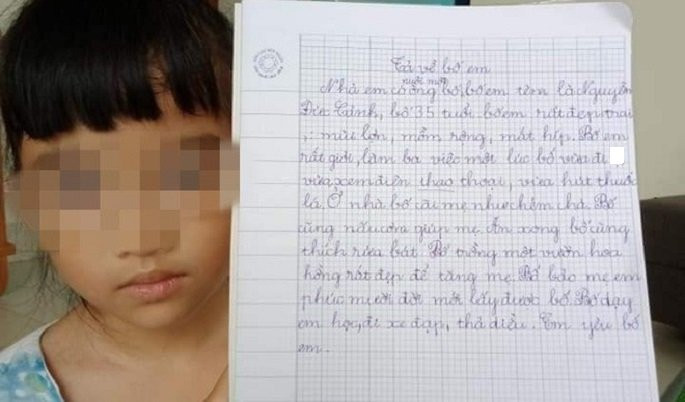 Tả về bố em
nuôi một
Nhà em có ông bố, bố em tên là Nguyễn
Đức Cảnh, bố 35 tuổi bố em rất đẹp trai
,: mũi lớn, mồm rộng, mắt híp. Bố em
rất giỏi, làm ba việc một lúc bố vừa đi
vừa xem điện thao thoại, vừa hút thuốc
lá. Ở nhà bố cãi mẹ như chém chả. Bố
cũng nấu cơm giúp mẹ. Ăn xong bố cũng
thích rửa bát. Bố trồng một vườn hoa
hồng rất đẹp để tặng mẹ. Bố bảo mẹ em
phúc mười đời mới lấy được bố. Bố dạy
em học, đi xe đạp, thả diều. Em yêu bố
em.